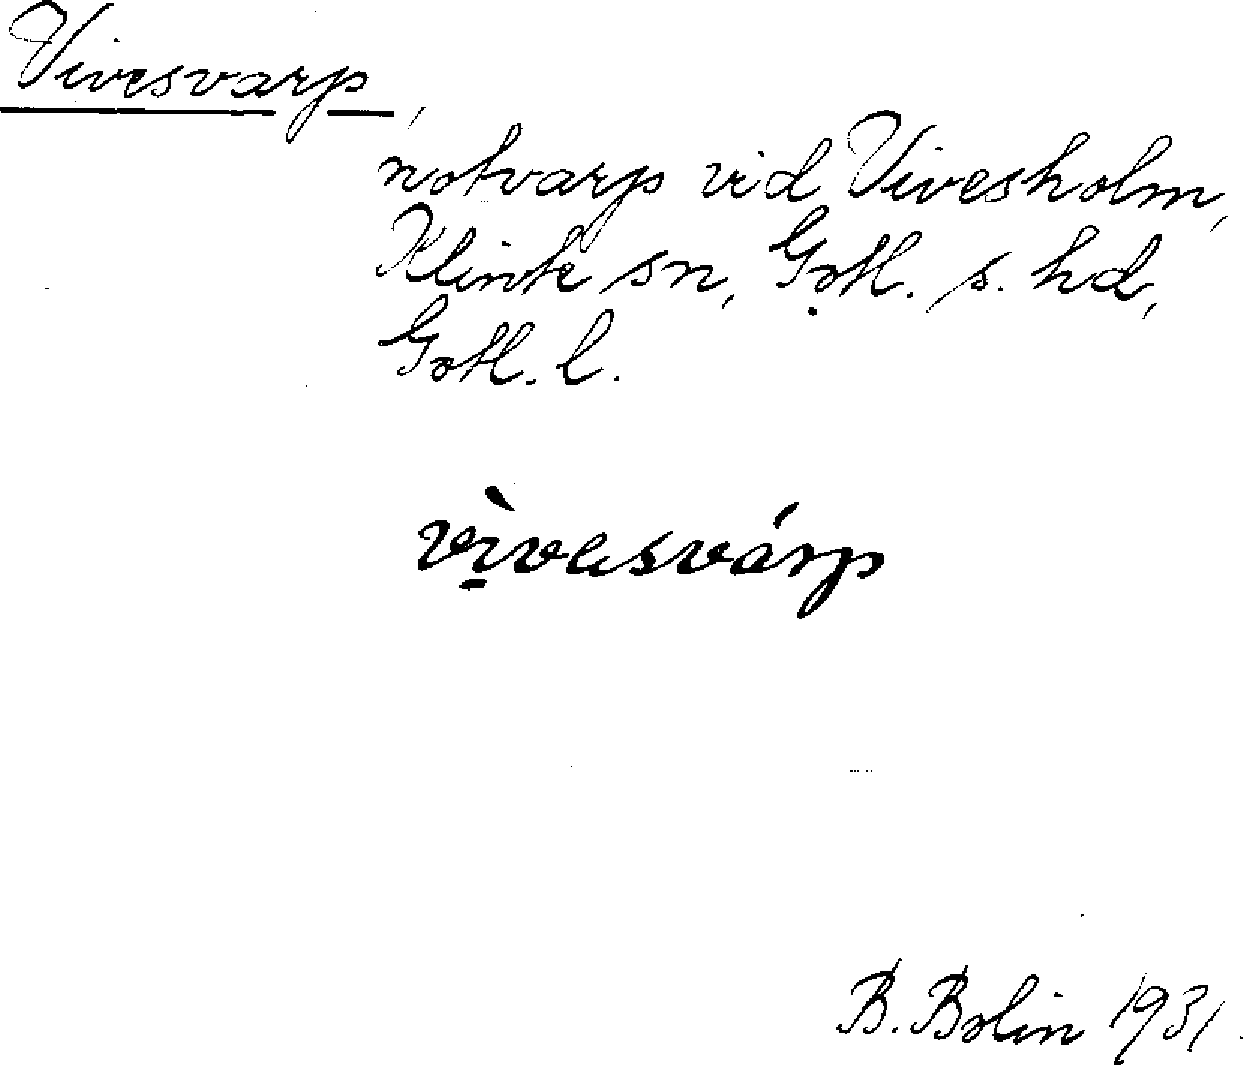 Vivesvarp,
notvarp vid Vivesholm,
Klinte sn, Gotl. s. hd,
Gotl. l.
vì̠vesvárp
B. Bolin 1931.